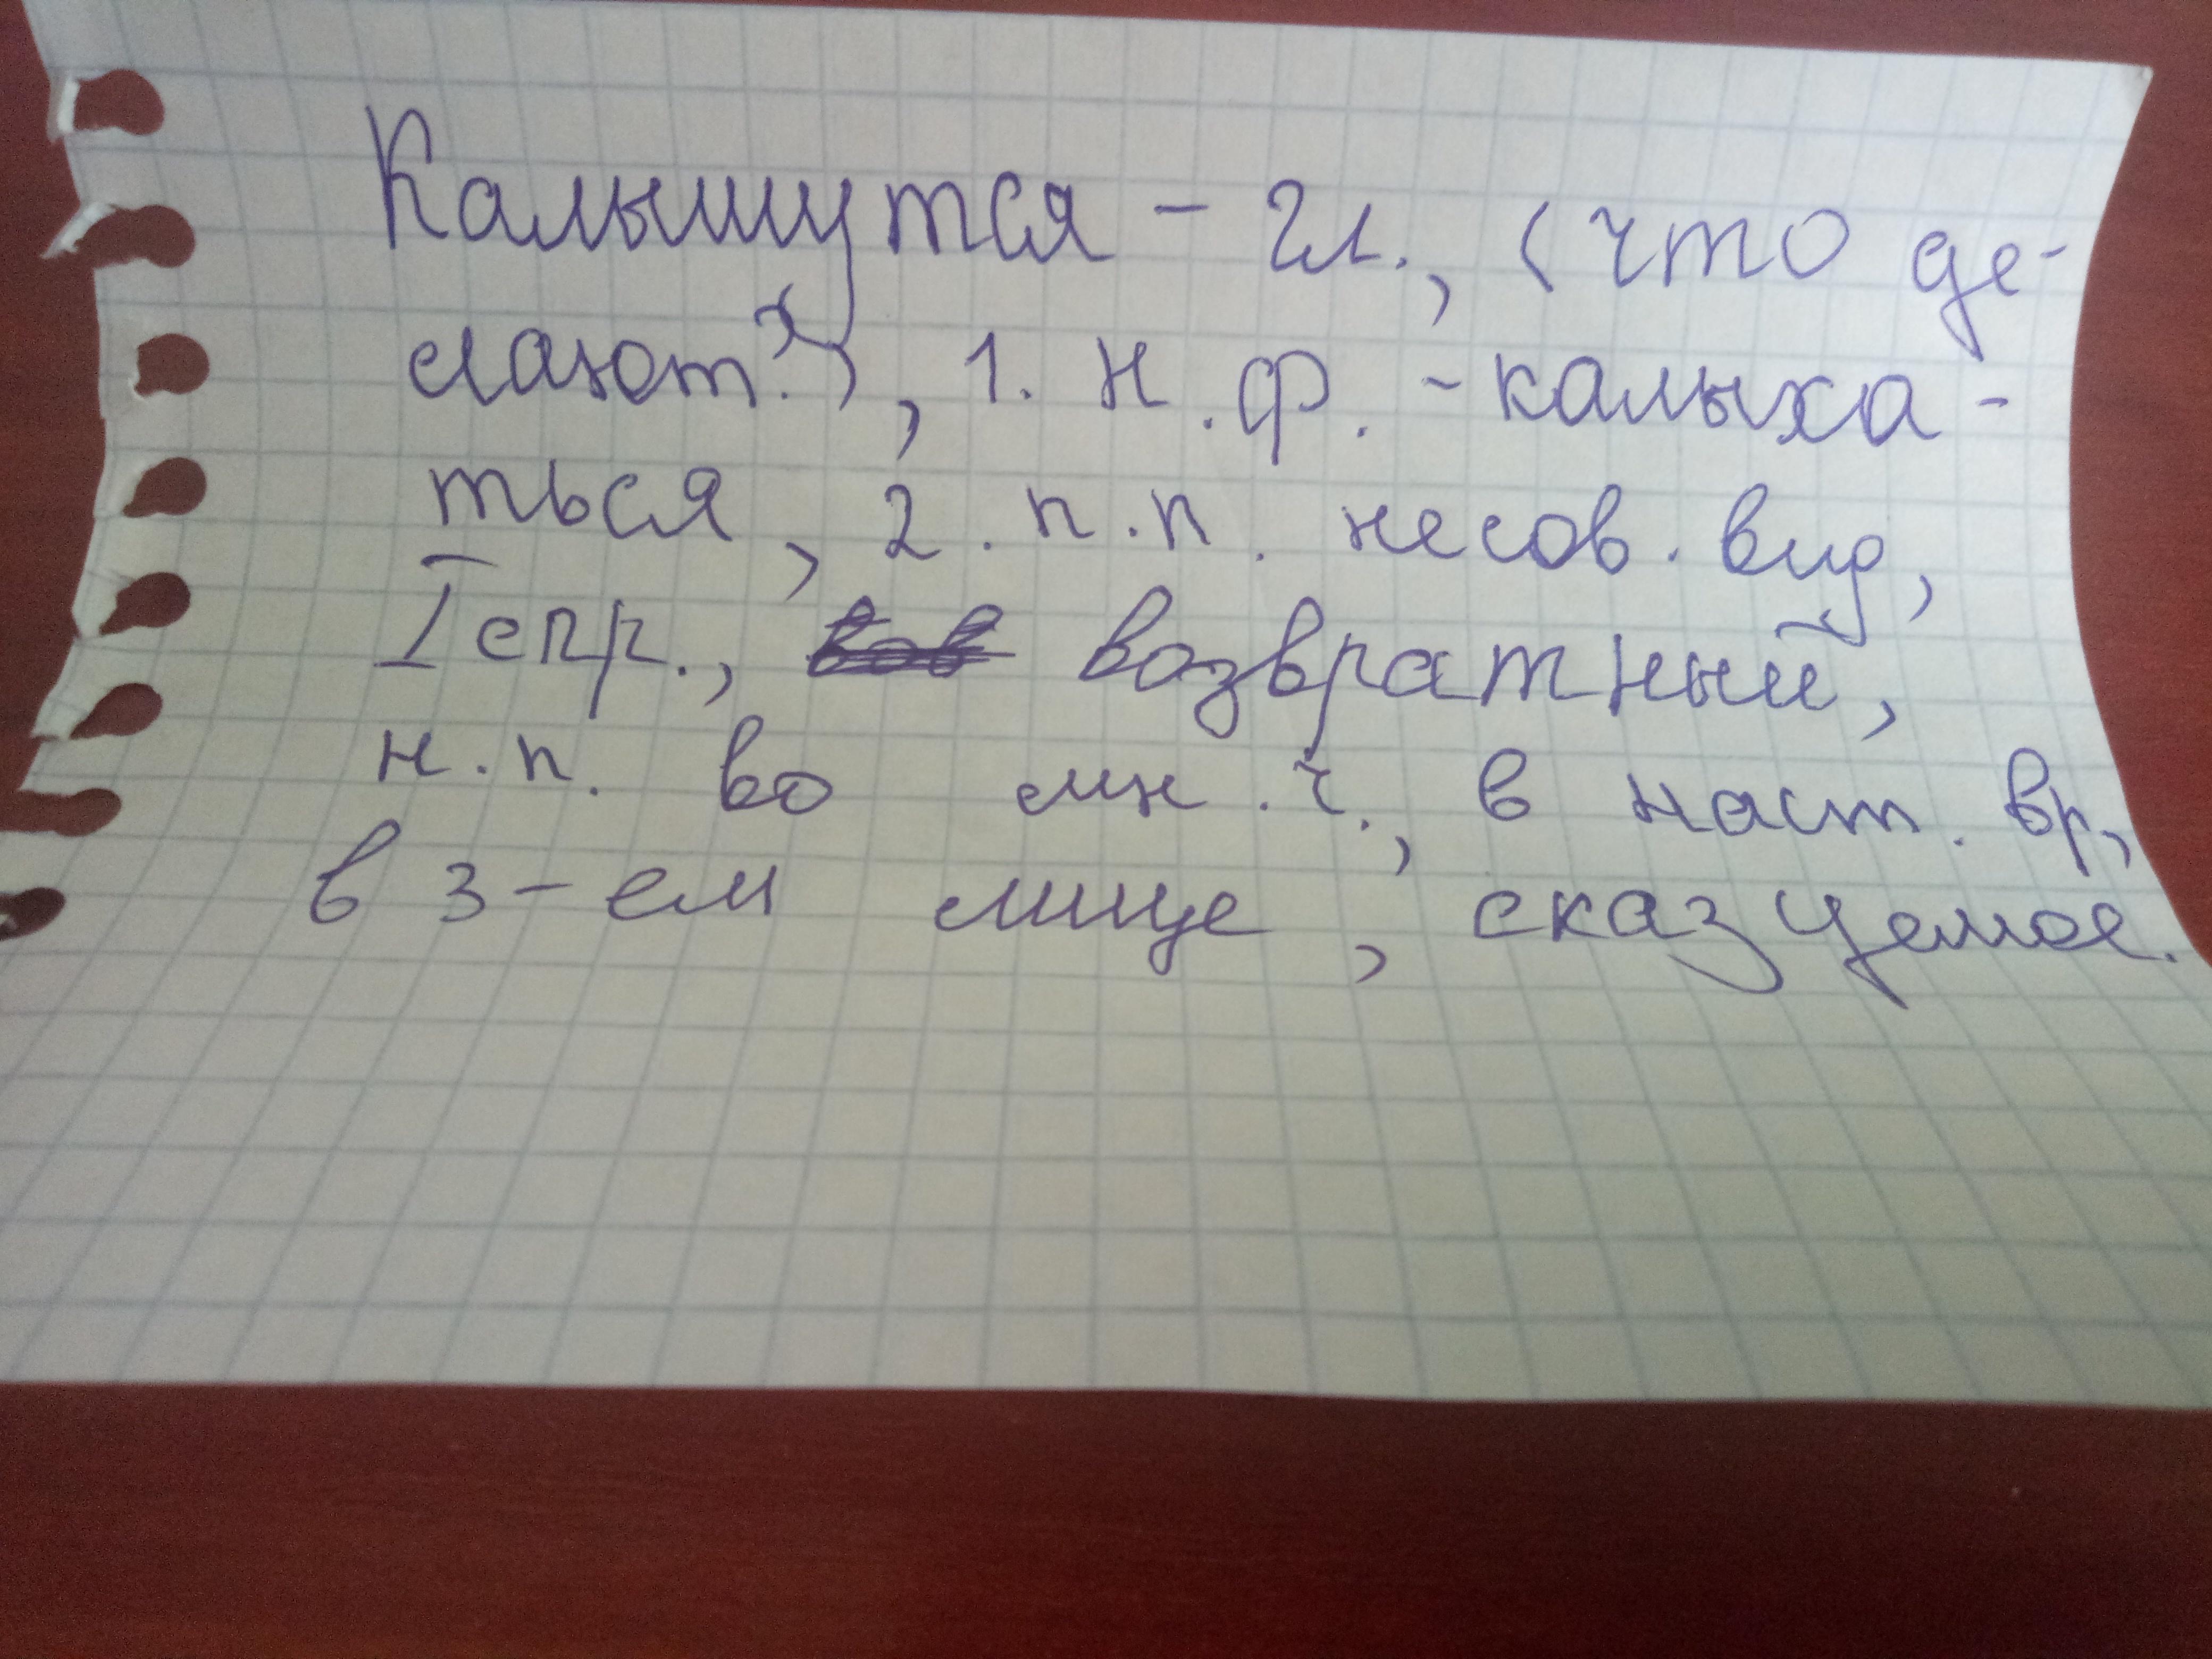 Калышутся - гл., (что де-
лают?), 1. н.ф. - калыха-
ться, 2. п.п. несов. вид,
I спр., возвратный,
н.п. во мн.ч., в наст. вр,
в 3-ем лице, сказуемое.